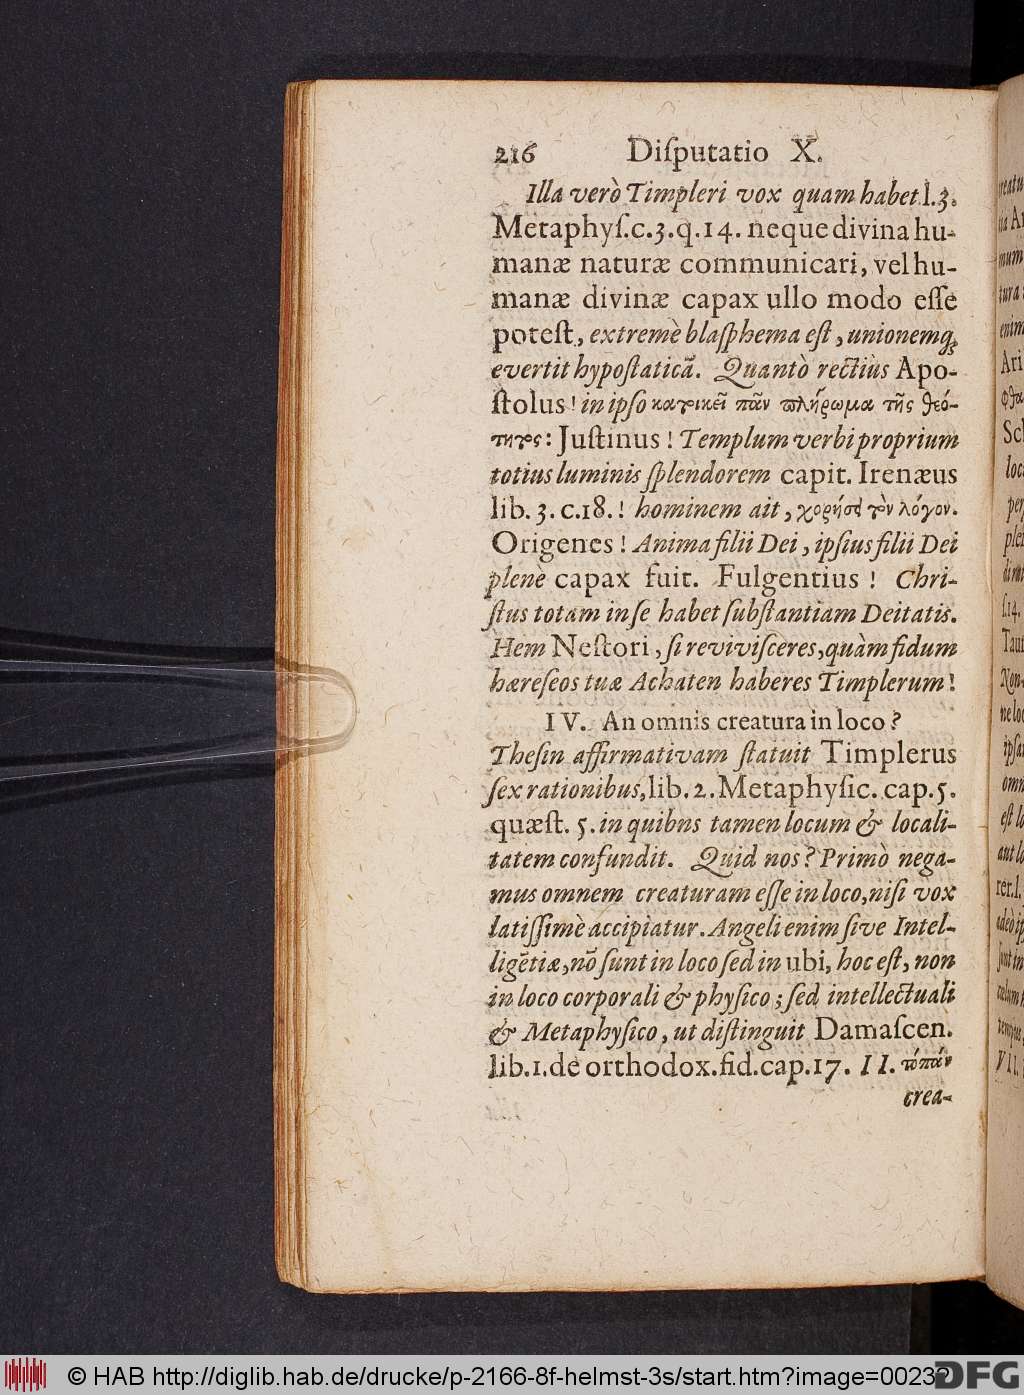 216 Diſputatio X.
Illa verò Timpleri vox quam habet l. 3.
Metaphyſ.c.3.q.14. neque divina hu-
manæ naturæ communicari, vel hu-
manæ divinæ capax ullo modo eſſe
poteſt, extremè blaſphema eſt, unionemq́;
evertit hypoſtaticã. Quantò rectiùs Apo-
ſtolus! in ipſo κατοικεῖ πᾶν πλήρωμα τῆς θεό-
τητος: Juſtinus! Templum verbi proprium
totius luminis ſplendorem capit. Irenæus
lib. 3. c.18.! hominem ait, χορήσαι τὸν λόγον.
Origenes! Anima filii Dei, ipſius filii Dei
plenè capax fuit. Fulgentius! Chri-
ſtus totam in ſe habet ſubſtantiam Deitatis.
Hem Neſtori, ſi reviviſceres, quàm fidum
hæreſeos tuæ Achaten haberes Timplerum!
IV. An omnis creatura in loco?
Theſin affirmativam ſtatuit Timplerus
ſex rationibus, lib. 2. Metaphyſic. cap. 5.
quæſt. 5. in quibns tamen locum & locali-
tatem confundit. Quid nos? Primò nega-
mus omnem creaturam eſſe in loco, niſi vox
latiſſimè accipiatur. Angeli enim ſive Intel-
ligẽtiæ, nõ ſunt in loco ſed in ubi, hoc eſt, non
in loco corporali & phyſico; ſed intellectuali
& Metaphyſico, ut diſtinguit Damaſcen.
lib.1.de orthodox.fid.cap.17. II.
crea-
© HAB http://diglib.hab.de/drucke/p-2166-8f-helmst-3s/start.htm?image=00232
DFG